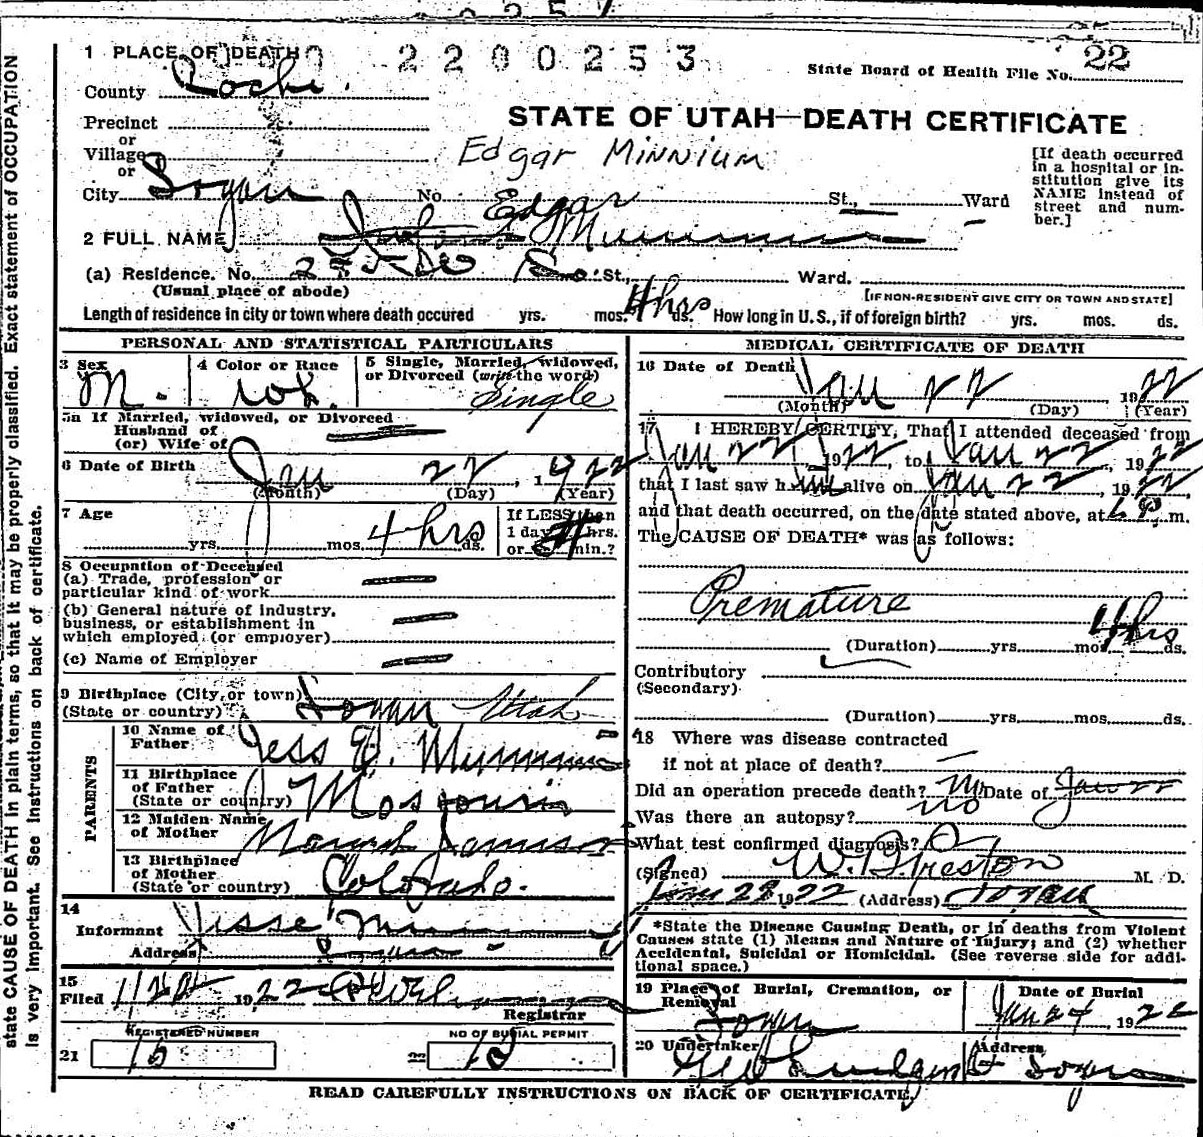 1 PLACE OF DEATH 2200253
State Board of Health File No. 22
County Cache
STATE OF UTAH—DEATH CERTIFICATE
Precinct
or
Village
or
Edgar Minnium
[If death occurred
in a hospital or in-
stitution give its
NAME instead of
street and num-
ber.]
City Logan No. St., Ward
Edgar
2 FULL NAME Minnium
(a) Residence. No. St., Ward.
(Usual place of abode)
[IF NON-RESIDENT GIVE CITY OR TOWN AND STATE]
Length of residence in city or town where death occured yrs. mos. 4 hrs ds. How long in U.S., if of foreign birth? yrs. mos. ds.
PERSONAL AND STATISTICAL PARTICULARS
3 Sex
M.
4 Color or Race
wh.
5 Single, Married, widowed,
or Divorced (write the word)
Single
5a If Married, widowed, or Divorced
Husband of
(or) Wife of
6 Date of Birth
Jan 22, 1922
(Month) (Day) (Year)
7 Age
yrs. mos. 4 hrs ds.
If LESS than
1 day hrs.
or min.?
8 Occupation of Deceased
(a) Trade, profession or
particular kind of work
(b) General nature of industry,
business, or establishment in
which employed (or employer)
(c) Name of Employer
9 Birthplace (City or town)
(State or country) Logan Utah
PARENTS
10 Name of
Father Jess Minnium
11 Birthplace
of Father
(State or country) Missouri
12 Maiden Name
of Mother
13 Birthplace
of Mother
(State or country) Colorado.
14
Informant Jesse Minnium
Address Logan
15
Filed 1922
Registrar
REGISTERED NUMBER
21 15
NO OF BURIAL PERMIT
22
MEDICAL CERTIFICATE OF DEATH
16 Date of Death
Jan 22 1922
(Month) (Day) (Year)
17 I HEREBY CERTIFY, That I attended deceased from
Jan 22, 1922, to Jan 22, 1922
that I last saw him alive on Jan 22, 1922
and that death occurred, on the date stated above, at P m.
The CAUSE OF DEATH* was as follows:
Premature
(Duration) yrs. mos. 4 hrs ds.
Contributory
(Secondary)
(Duration) yrs. mos. ds.
18 Where was disease contracted
if not at place of death?
Did an operation precede death? no Date of
Was there an autopsy? no
What test confirmed diagnosis?
(Signed) W. B. Preston M. D.
1922 (Address) Logan
*State the Disease Causing Death, or in deaths from Violent
Causes state (1) Means and Nature of Injury; and (2) whether
Accidental, Suicidal or Homicidal. (See reverse side for addi-
tional space.)
19 Place of Burial, Cremation, or
Removal
Logan
Date of Burial
Jan 24, 1922
20 Undertaker
Geo
Address
Logan
READ CAREFULLY INSTRUCTIONS ON BACK OF CERTIFICATE
state CAUSE OF DEATH in plain terms, so that it may be properly classified. Exact statement of OCCUPATION
is very important. See instructions on back of certificate.